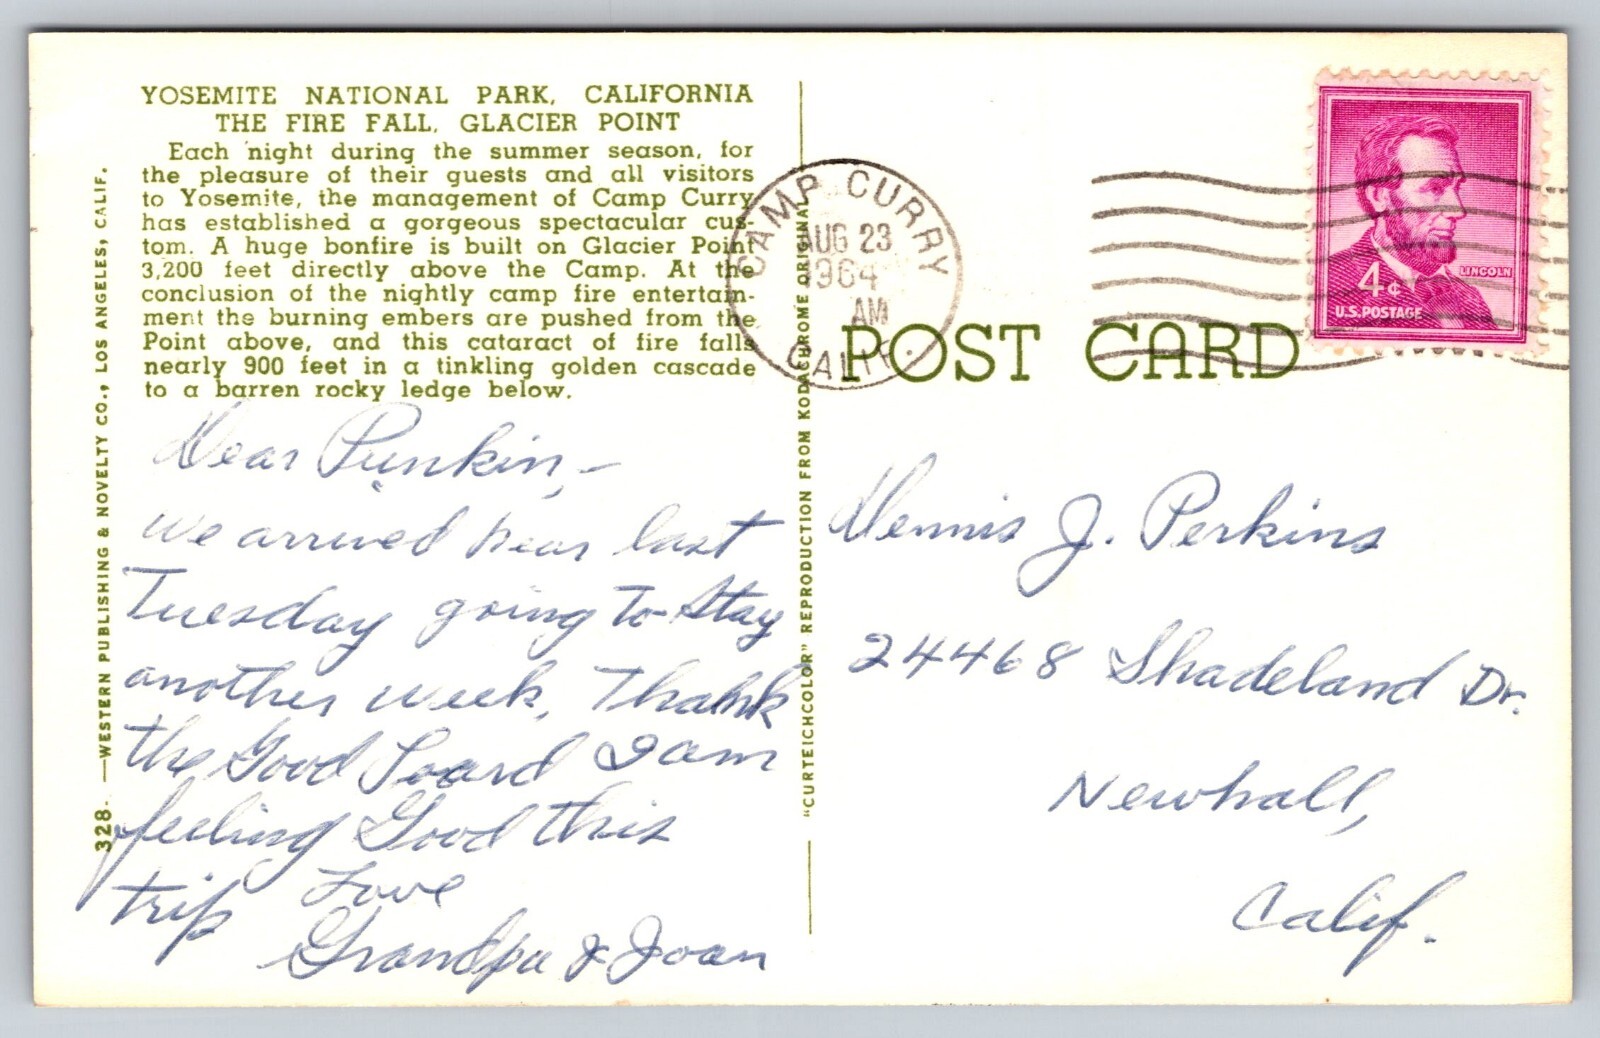 YOSEMITE NATIONAL PARK, CALIFORNIA
THE FIRE FALL, GLACIER POINT
Each night during the summer season, for
the pleasure of their guests and all visitors
to Yosemite, the management of Camp Curry
has established a gorgeous spectacular cus-
tom. A huge bonfire is built on Glacier Point
3,200 feet directly above the Camp. At the
conclusion of the nightly camp fire entertain-
ment the burning embers are pushed from the
Point above, and this cataract of fire falls
nearly 900 feet in a tinkling golden cascade
to a barren rocky ledge below.
Dear Punkin,-
we arrived hear last
Tuesday going to stay
another week. Thank
the Good Loard I am
feeling Good this
trip Love
Grandpa & Joan
328- —WESTERN PUBLISHING & NOVELTY CO., LOS ANGELES, CALIF.
"CURTEICHCOLOR" REPRODUCTION FROM KODACHROME ORIGINAL
CAMP CURRY
AUG 23
1964
AM
CALIF.
LINCOLN
4¢
U.S. POSTAGE
POST CARD
Dennis J. Perkins
24468 Shadeland Dr.
Newhall,
Calif.